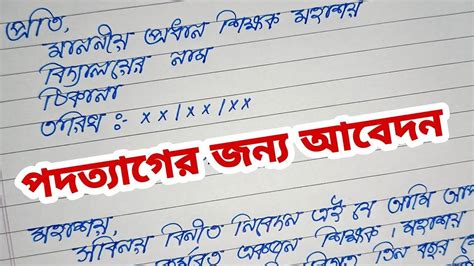 প্রতি,
মাননীয় প্রধান শিক্ষক মহাশয়
বিদ্যালয়ের নাম
ঠিকানা
তারিখ :- xx/xx/xx
পদত্যাগের জন্য আবেদন
মহাশয়,
সবিনয় বিনীত নিবেদন এই যে আমি আপ
কর্মরত একজন শিক্ষক। মহাশয়
বিগত তিন বছর